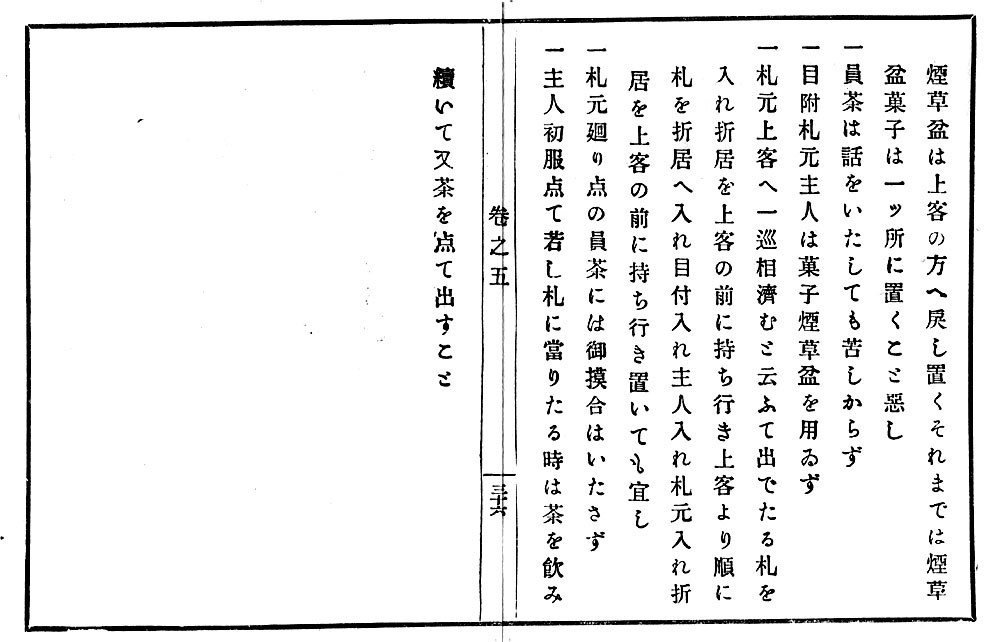 煙草盆は上客の方へ戻し置くそれまでは煙草
盆菓子は一ッ所に置くこと惡し
一員茶は話をいたしても苦しからず
一目附札元主人は菓子煙草盆を用ゐず
一札元上客へ一巡相濟むと云ふて出でたる札を
入れ折居を上客の前に持ち行き上客より順に
札を折居へ入れ目付入れ主人入れ札元入れ折
居を上客の前に持ち行き置いても宜し
一札元廻り点の員茶には御摸合はいたさず
一主人初服点て若し札に當りたる時は茶を飮み
卷之五
三十六
續いて又茶を点て出すこと